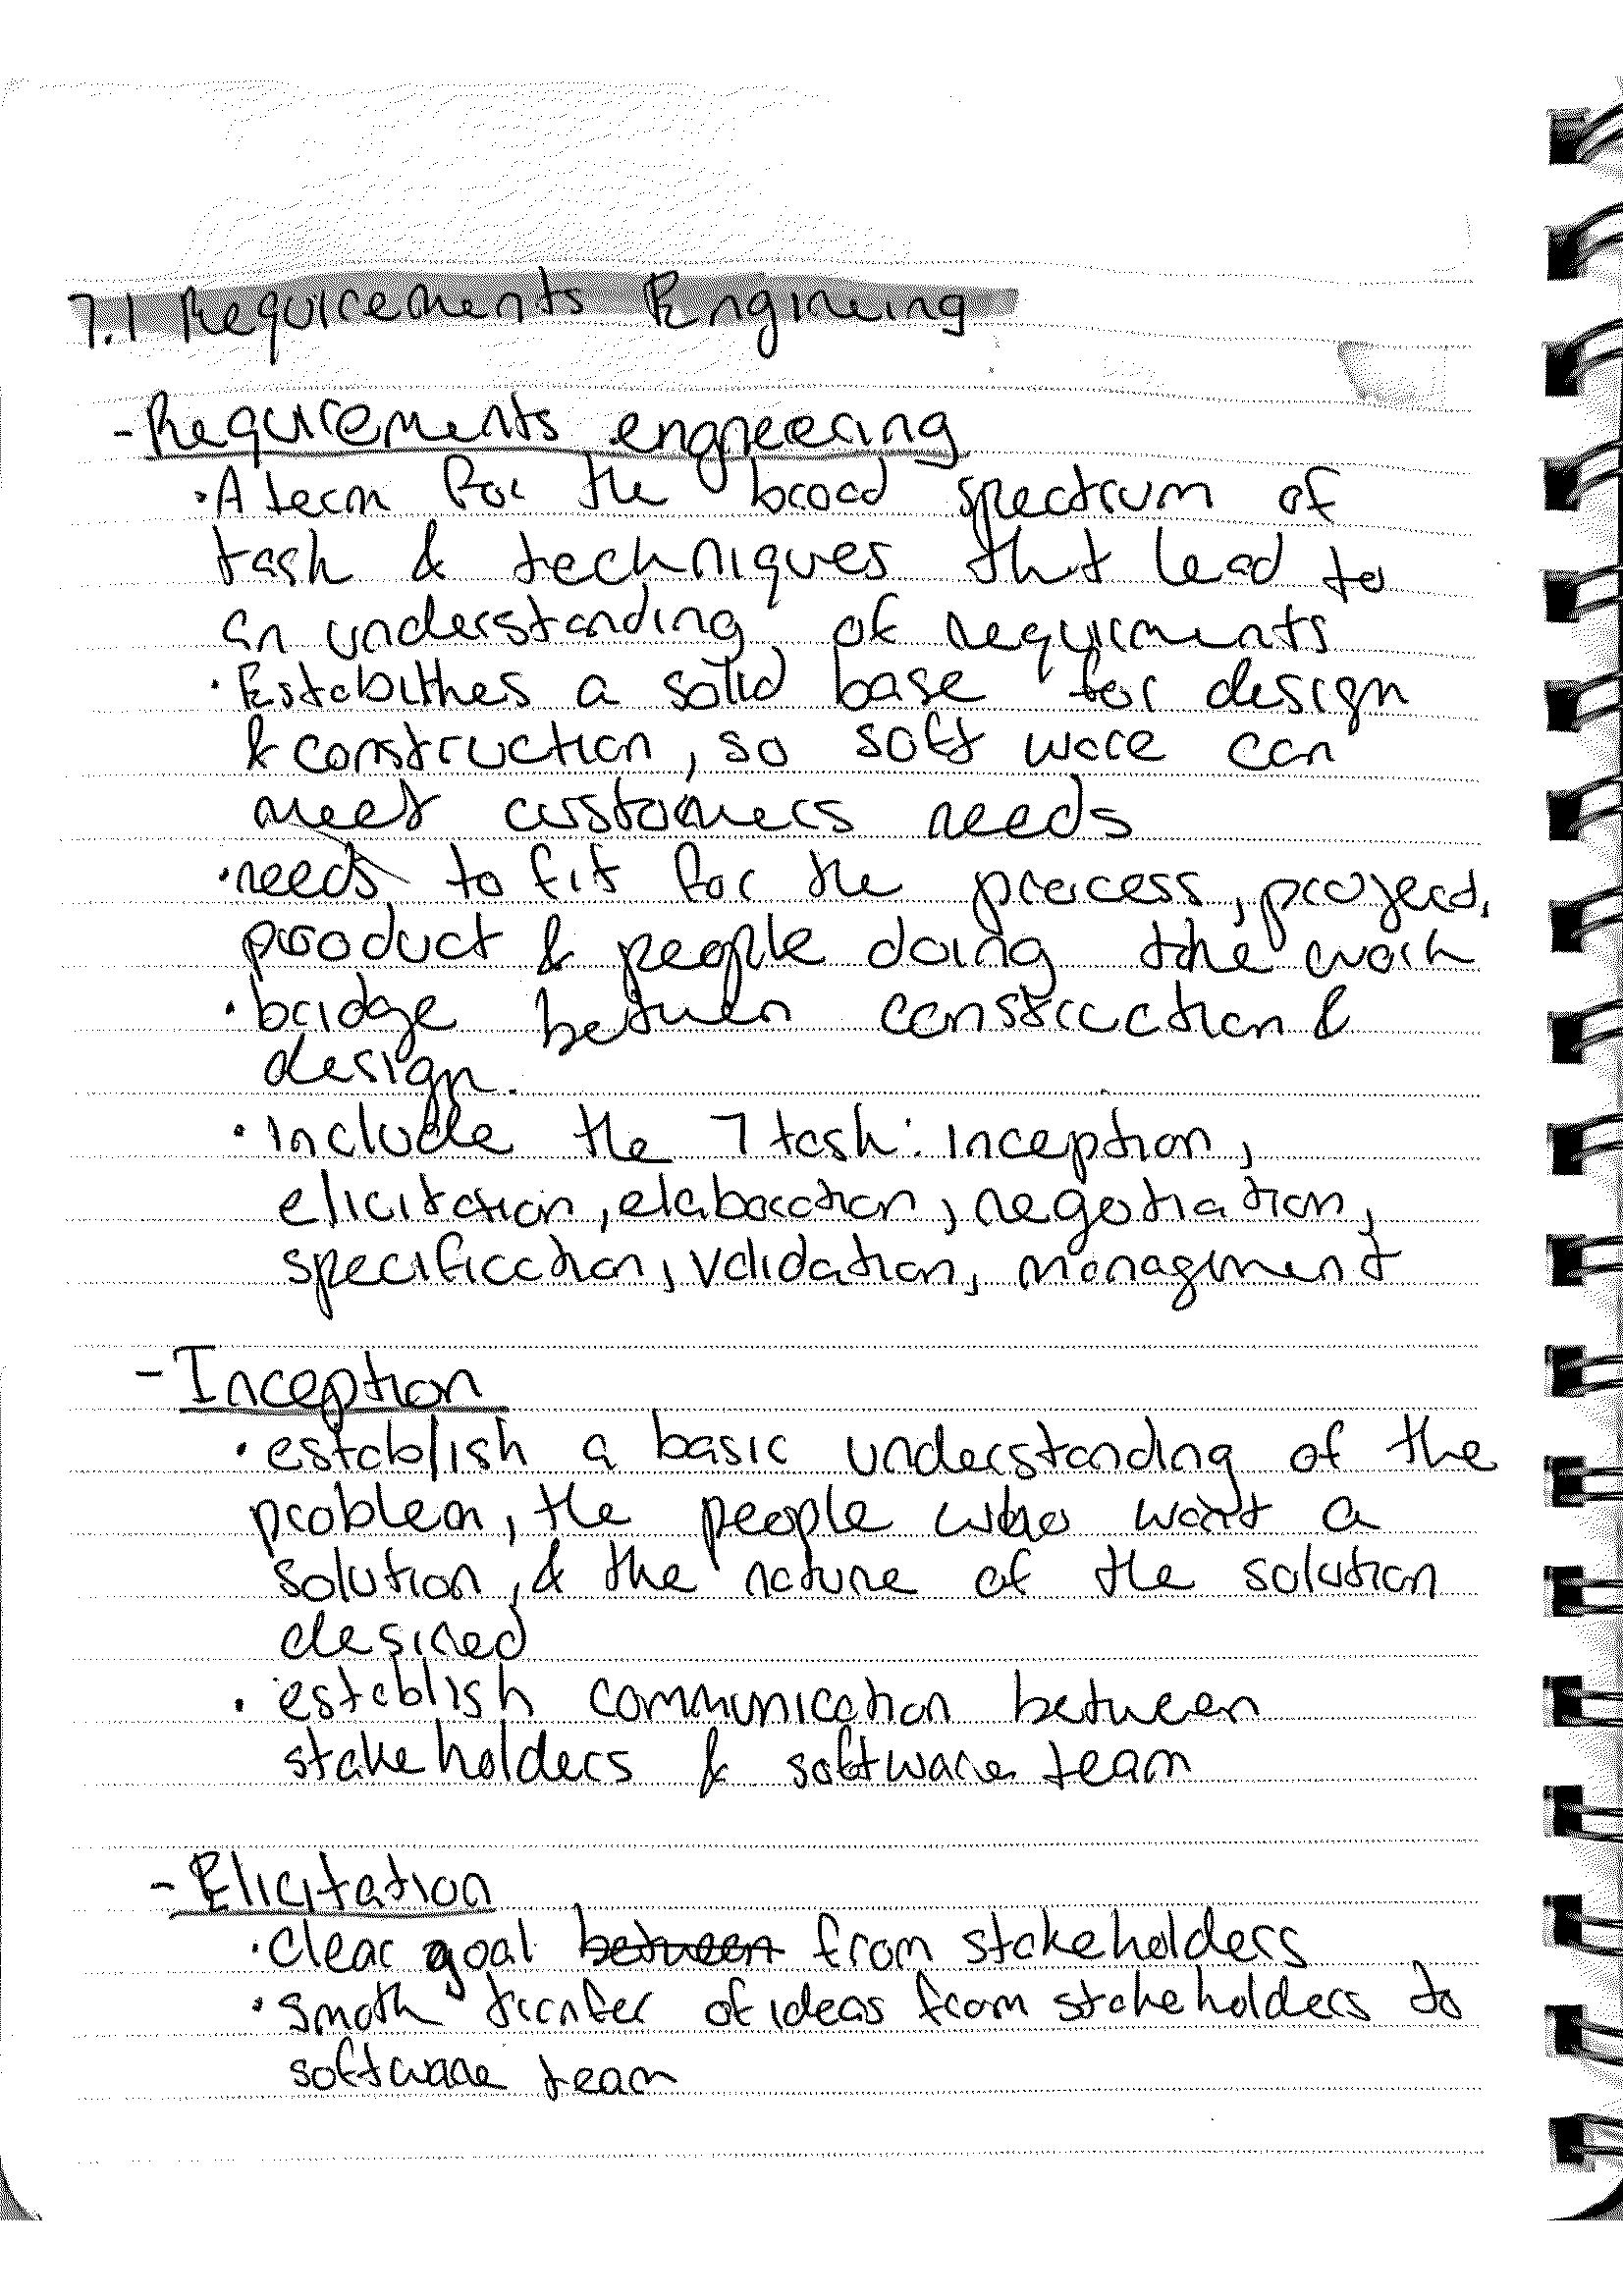 7.1 Requirements Engineering
- Requirements engneering
· A term for the broad spectrum of
task & techniques that lead to
an understanding of requirments
· Establithes a solid base for design
& construction, so soft ware can
meet customers needs
· needs to fit for the process, project,
product & people doing the work
· bridge between construction &
design.
· Include the 7 task: inception,
elicitation, elaboration, negotiation,
specification, validation, managment
- Inception
· establish a basic understanding of the
problem, the people who want a
solution, & the nature of the solution
desired
· establish communication between
stakeholders & software team
- Elicitation
· clear goal between from stakeholders
· smoth tranfer of ideas from stakeholders to
software team